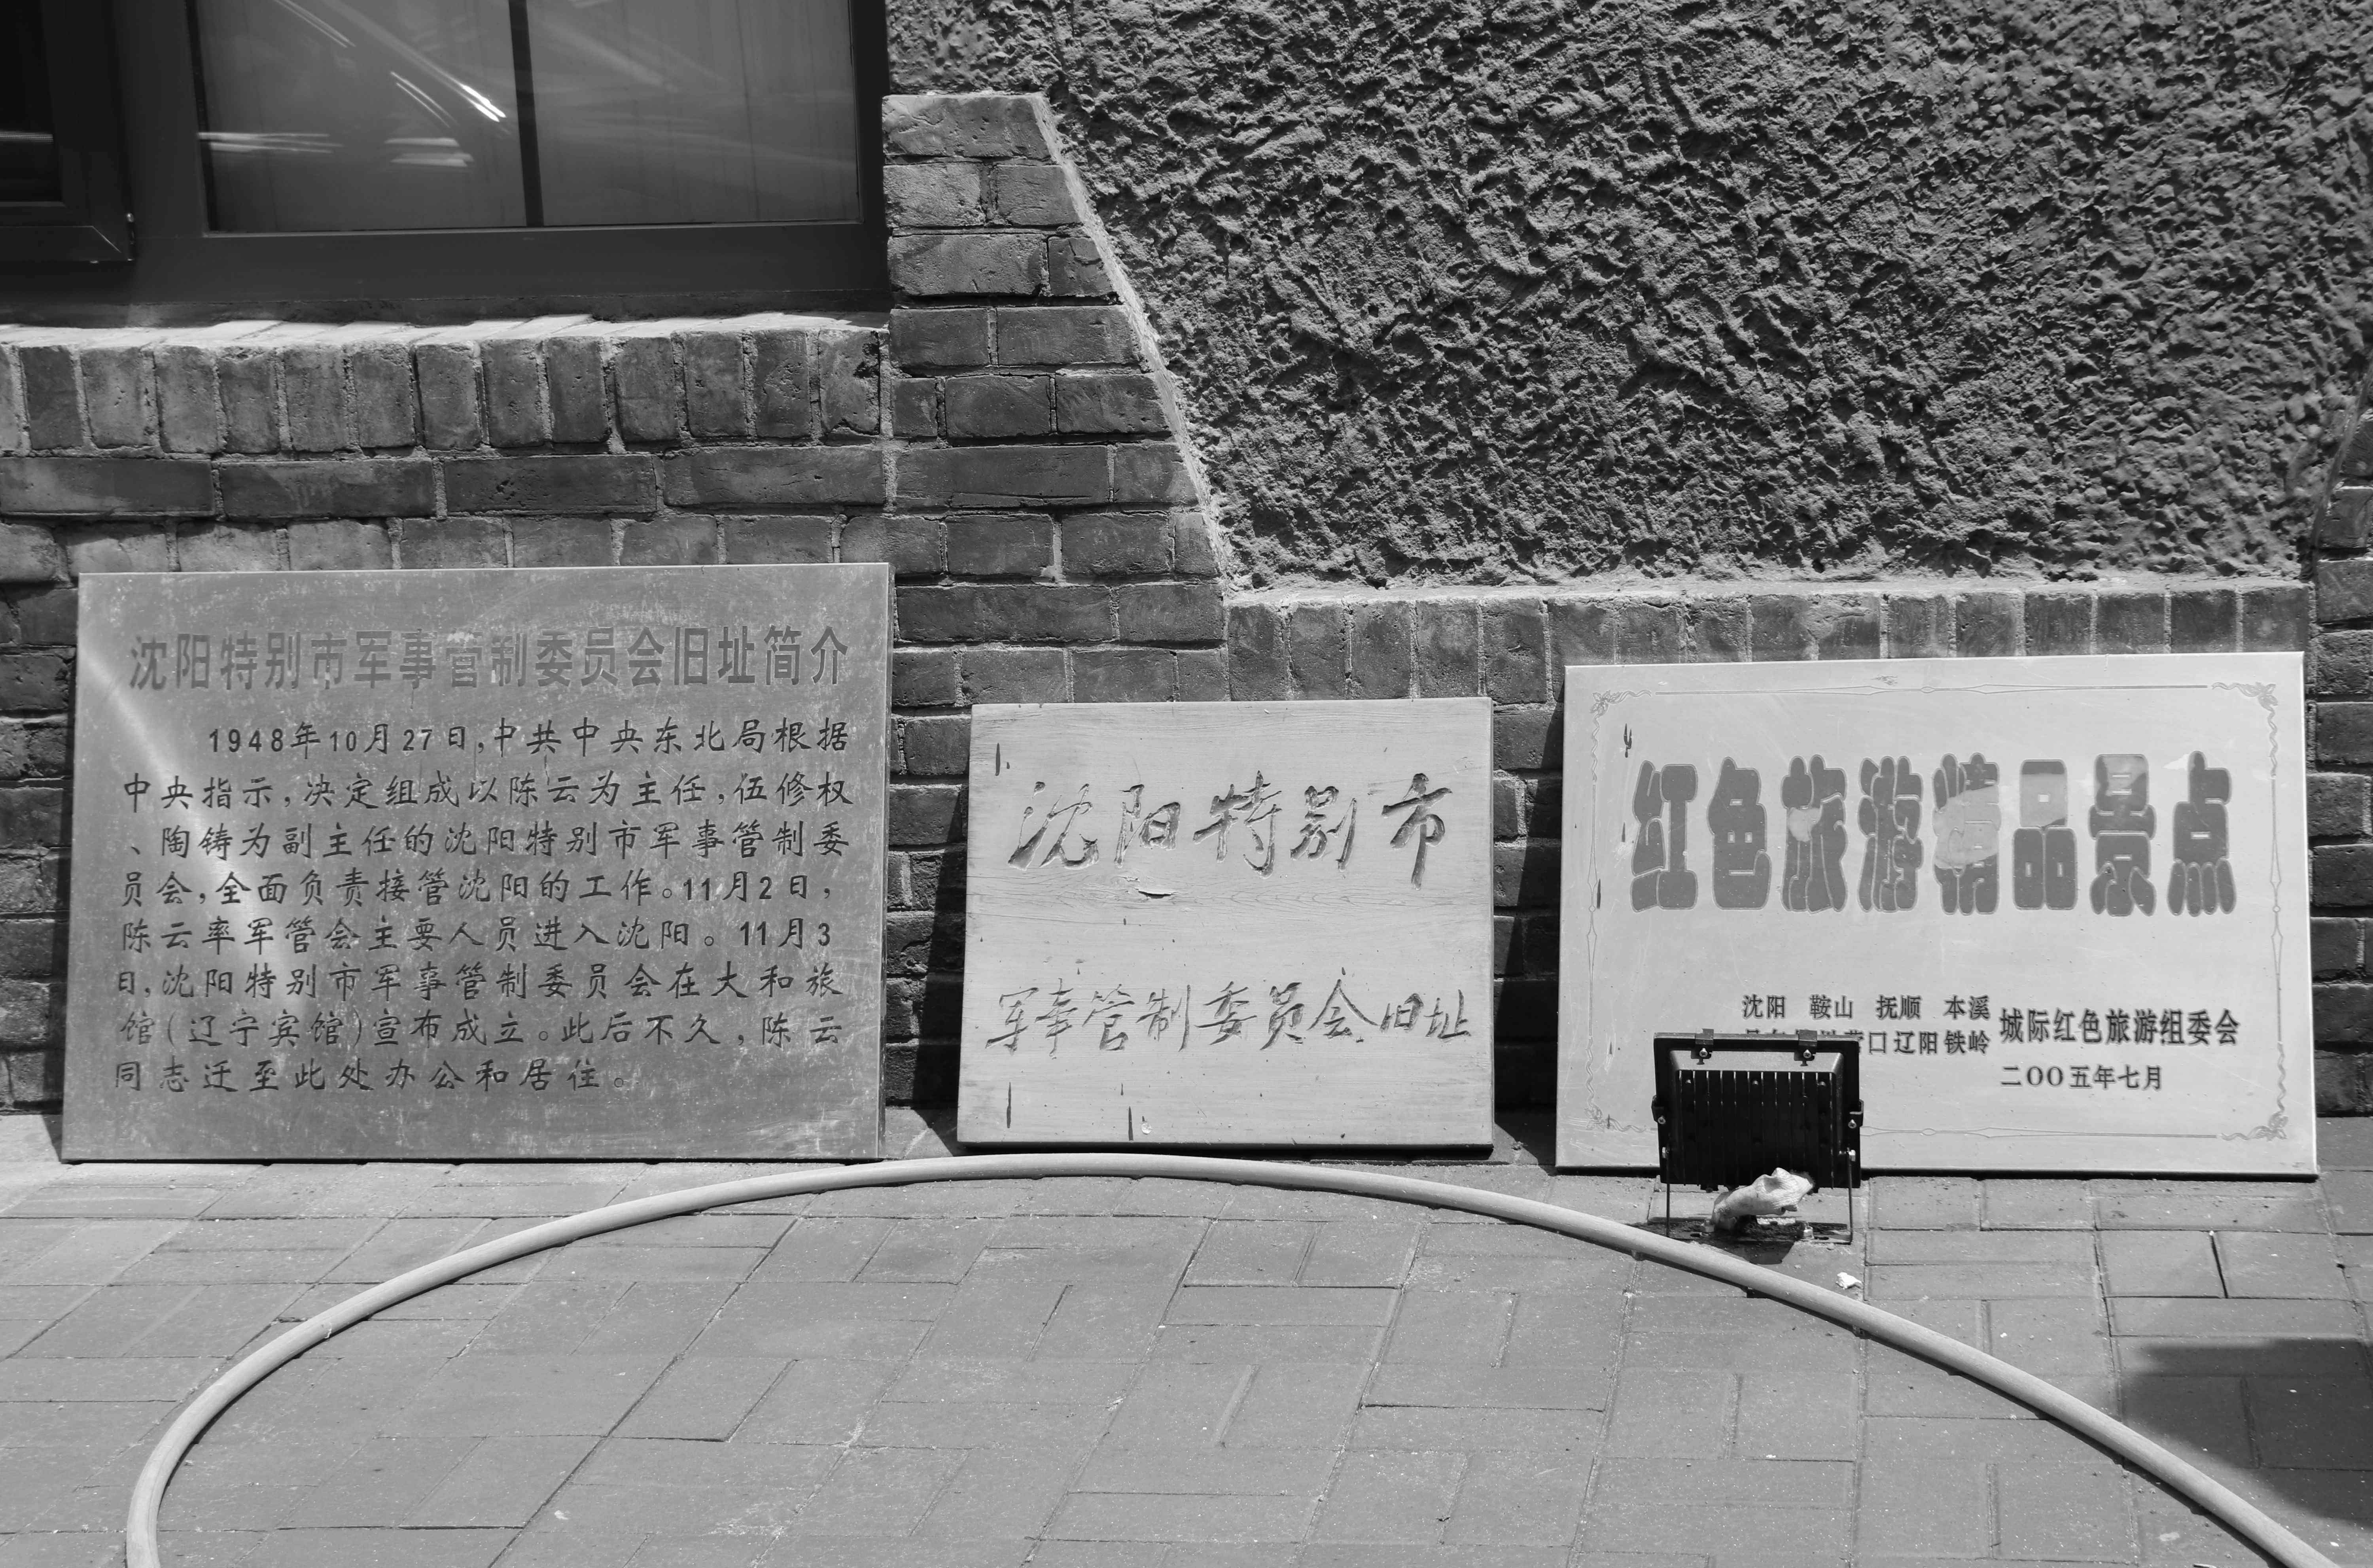 沈阳特别市军事管制委员会旧址简介
1948年10月27日,中共中央东北局根据
中央指示,决定组成以陈云为主任,伍修权
、陶铸为副主任的沈阳特别市军事管制委
员会,全面负责接管沈阳的工作。11月2日,
陈云率军管会主要人员进入沈阳。11月3
日,沈阳特别市军事管制委员会在大和旅
馆(辽宁宾馆)宣布成立。此后不久,陈云
同志迁至此处办公和居住。
沈阳特别市
军事管制委员会旧址
红色旅游精品景点
沈阳 鞍山 抚顺 本溪
口辽阳铁岭
城际红色旅游组委会
二OO五年七月